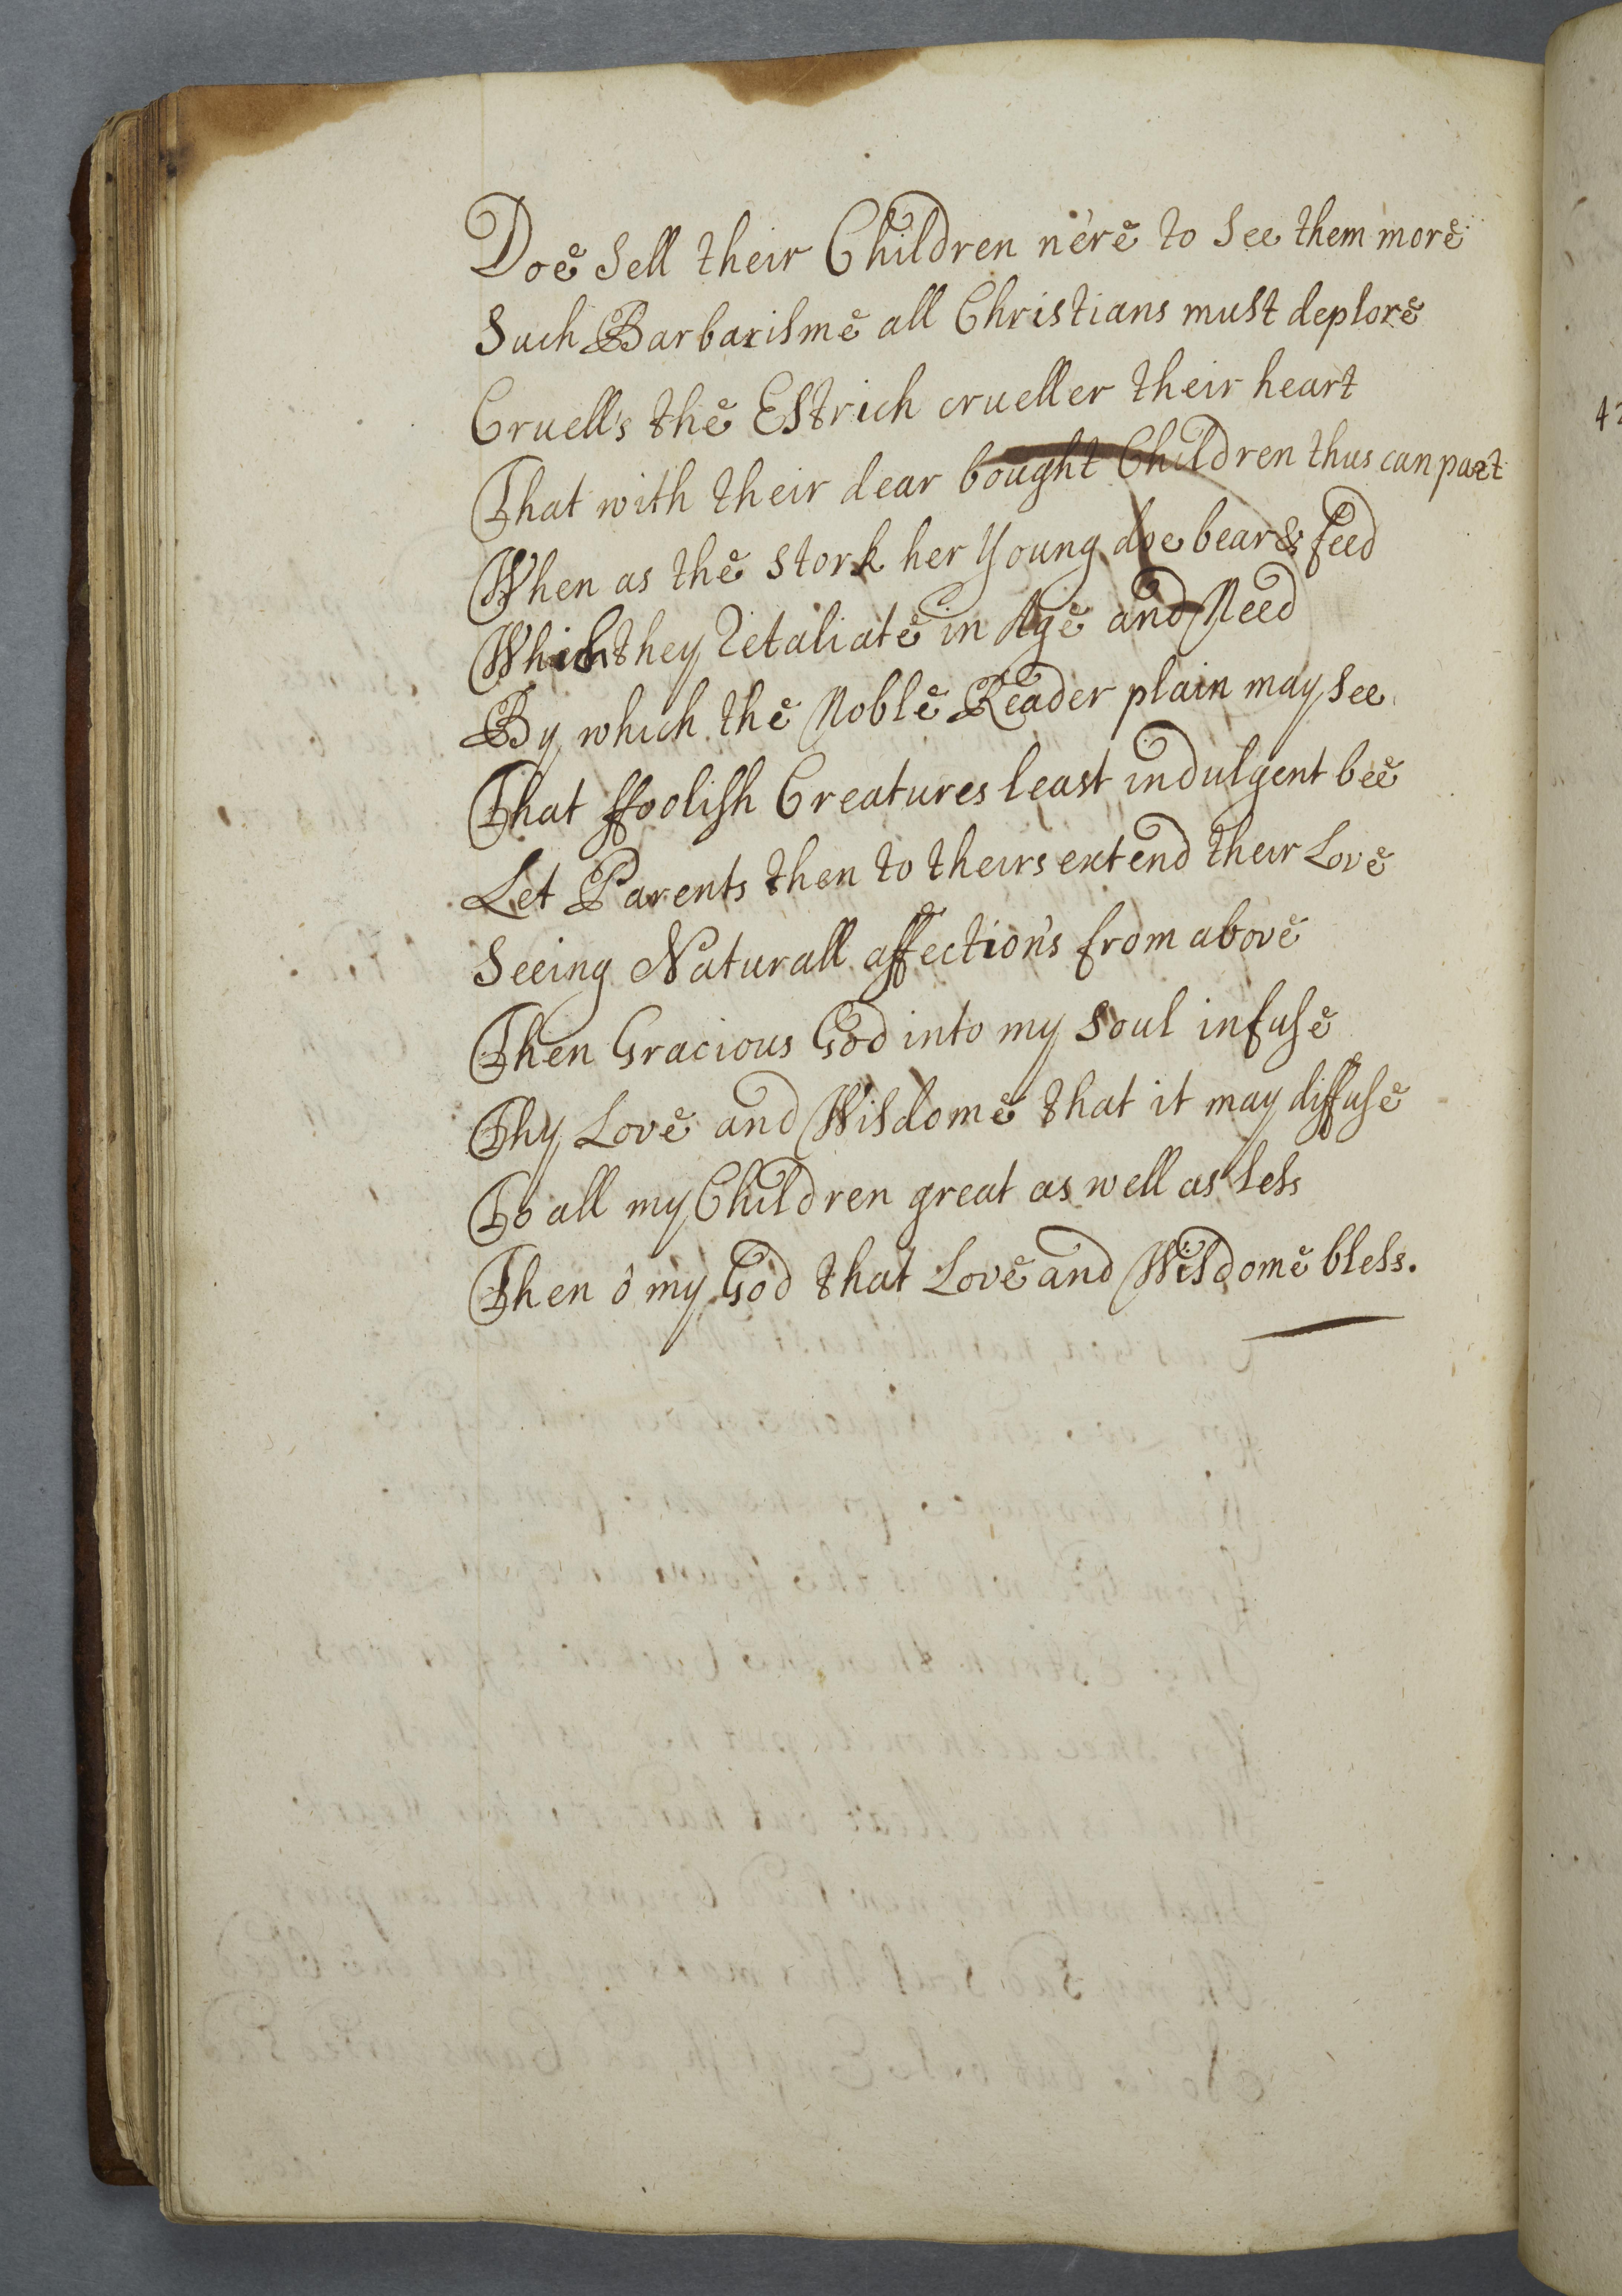 Doe sell their Children ne're to see them more
Such Barbarisme all Christians must deplore
Cruell's the Estrich crueller their heart
That with their dear bought Children thus can part
When as the Stork her Young doe bear & feed
Which they retaliate in Age and Need
By which the Noble Reader plain may see
That ffoolish Creatures least indulgent bee
Let Parents then to theirs extend their Love
Seeing Naturall affection's from above
Then Gracious God into my soul infuse
Thy Love and Wisdome that it may diffuse
To all my Children great as well as less
Then ô my God that Love and Wisdome bless.